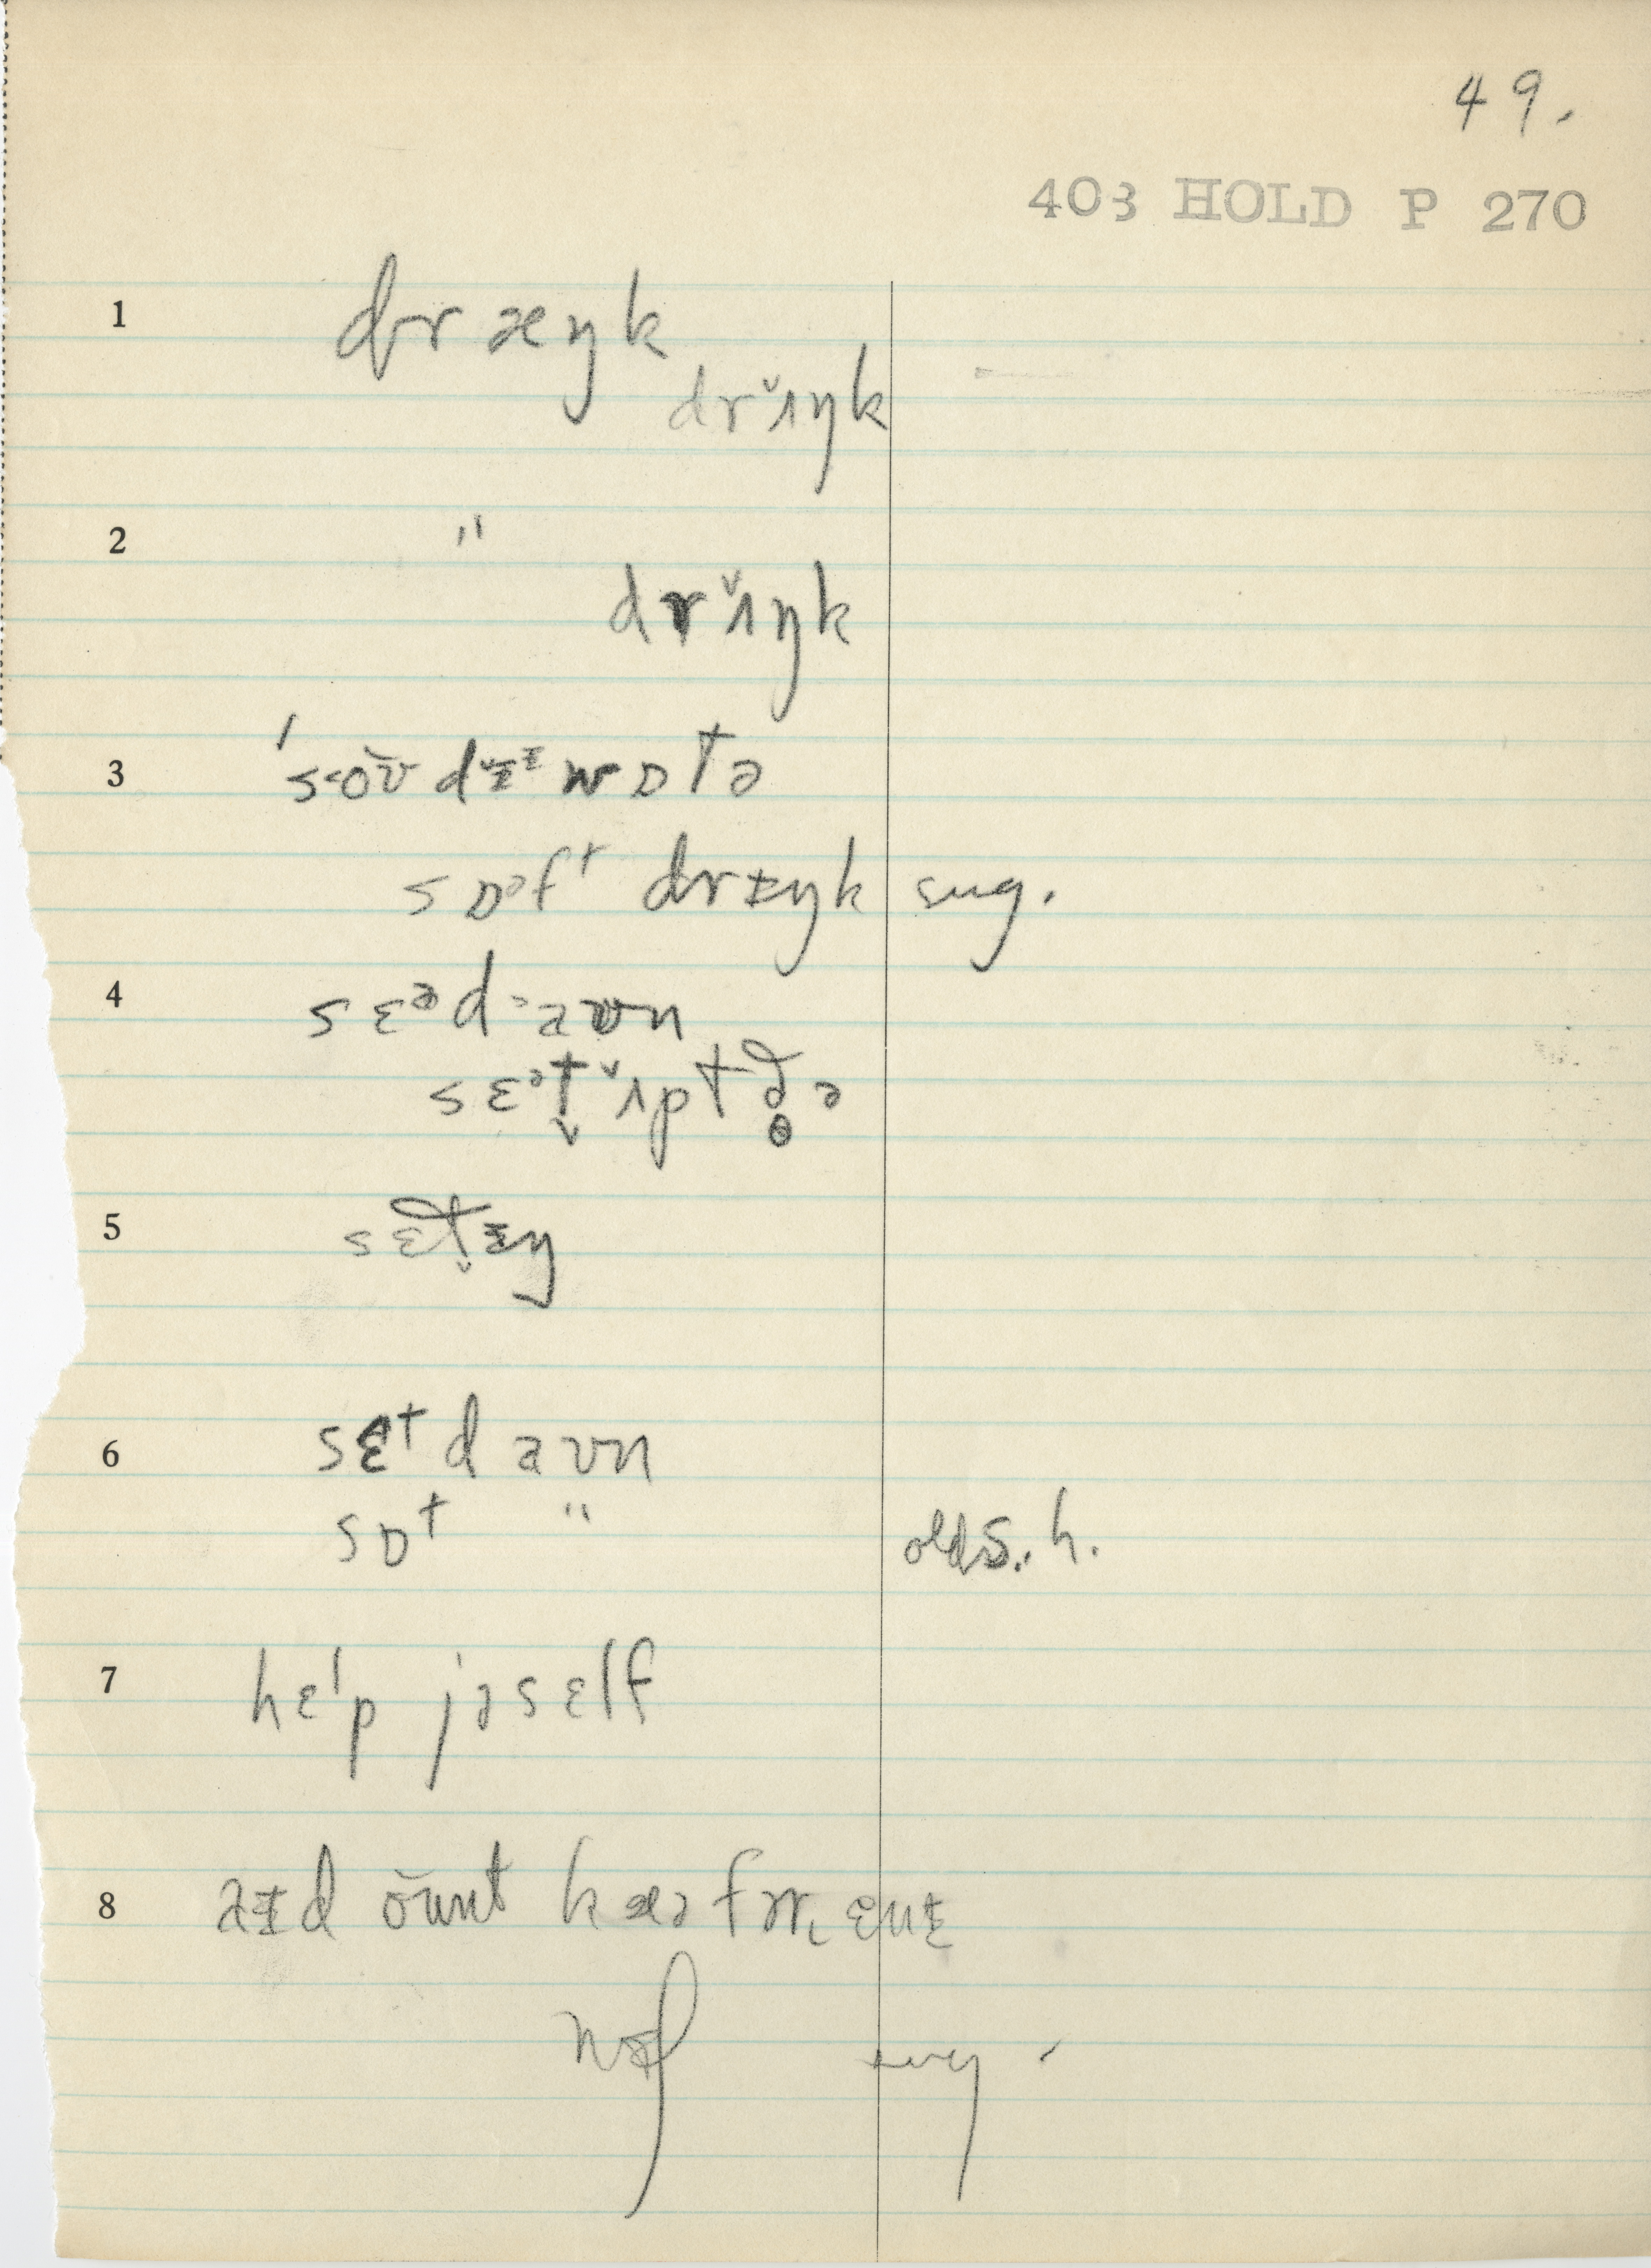 49.
403 HOLD P 270
1 dræŋk
drʌ̌ŋk
2 "
drʌ̌ŋk
3 ˈsoʊ̆dɪ̆ᵻwɒtə
sɒᵊft drɪŋk sug.
4 sɛᵊd aʊn
sɛᵊt̬ ʌ̌pt ðə
5 sɛt̬ɪŋ
6 sɛt daʊn
sɒt " old s. h.
7 hɛˈlp jəsɛlf
8 aɪd oʊ̆nt kæə fɚ ɛnɪ